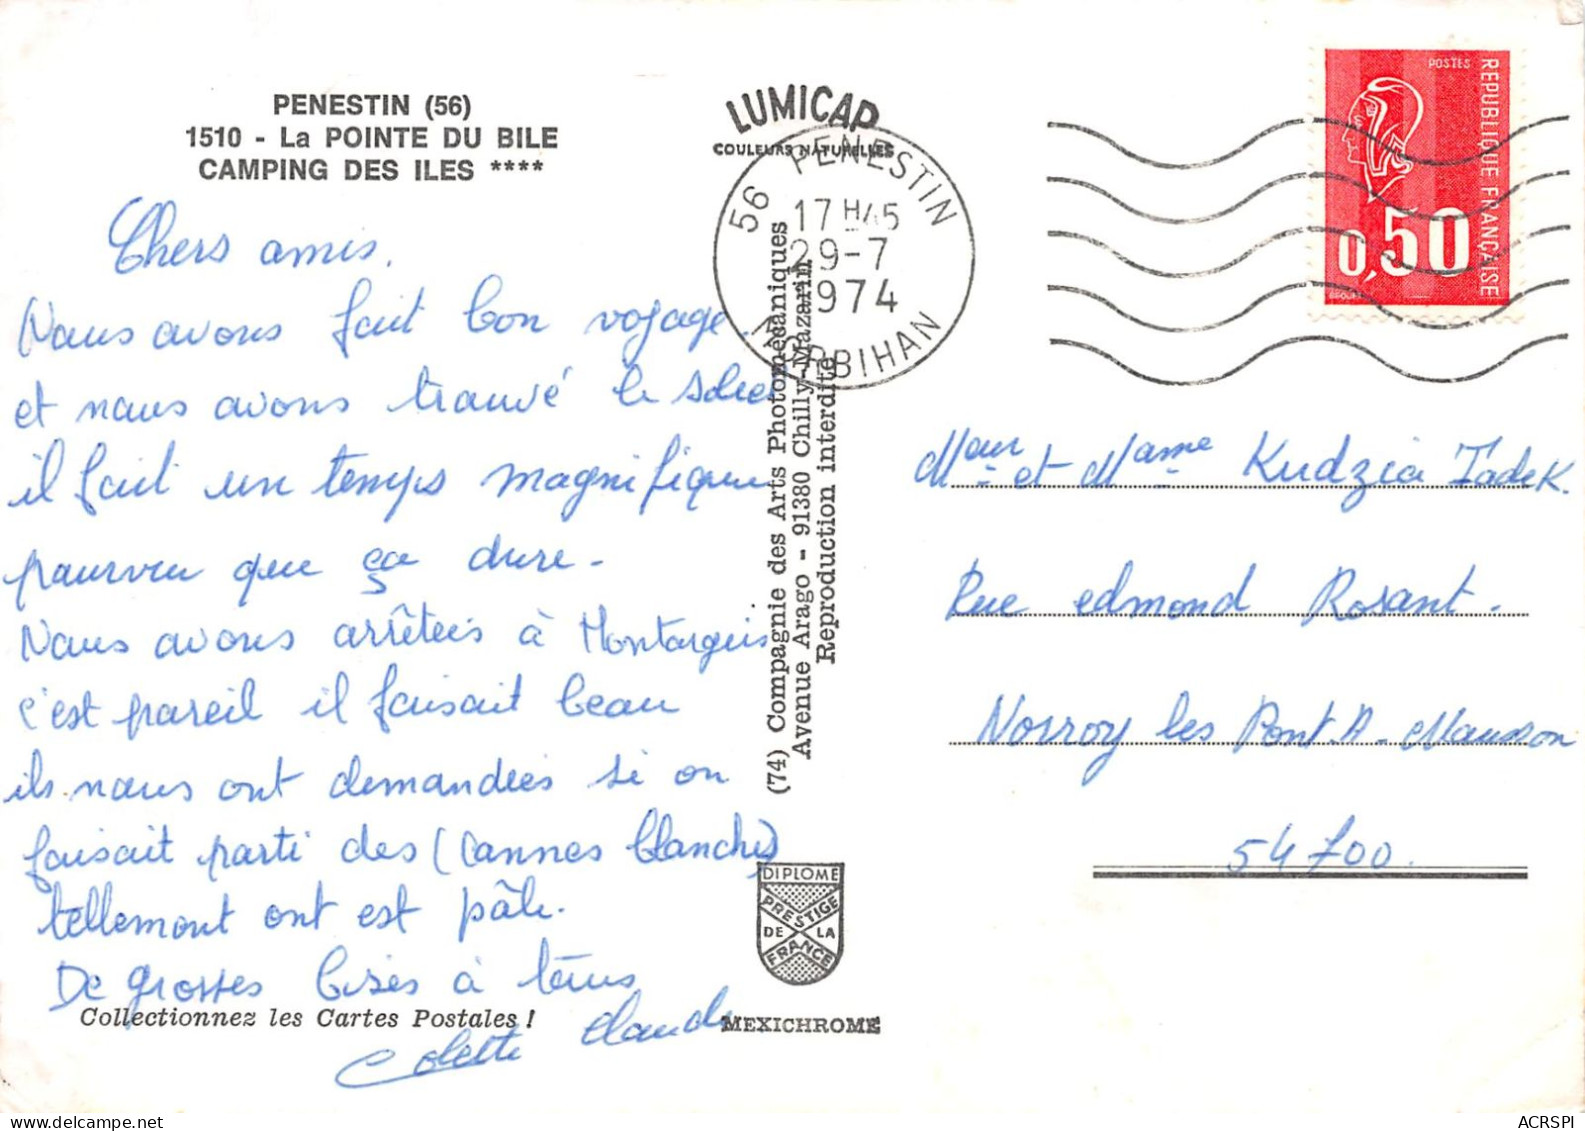 PENESTIN (56)
1510 - La POINTE DU BILE
CAMPING DES ILES ****
Chers amis.
Nous avons fait bon voyage
et nous avons trouvé le soleil
il fait un temps magnifique
pourvu que ça dure.
Nous avons arrêtées à Montargis
c'est pareil il faisait beau
ils nous ont demandées si on
faisait parti des (Cannes blanches)
tellemont ont est pâle.
De grosses bises à tous
Claude
Colette
Collectionnez les Cartes Postales !
LUMICAP
COULEURS NATURELLES
56 PENESTIN
17 H45
29-7
1974
MORBIHAN
(74) Compagnie des Arts Photomécaniques
Avenue Arago - 91380 Chilly-Mazarin
Reproduction interdite
DIPLOME
PRESTIGE
DE LA
FRANCE
MEXICHROME
POSTES
REPUBLIQUE FRANÇAISE
0,50
Meur et Mame Kudzia Tadek.
Rue edmond Rosant.
Norroy les Pont.A.Mousson
54700.
ACRSPI